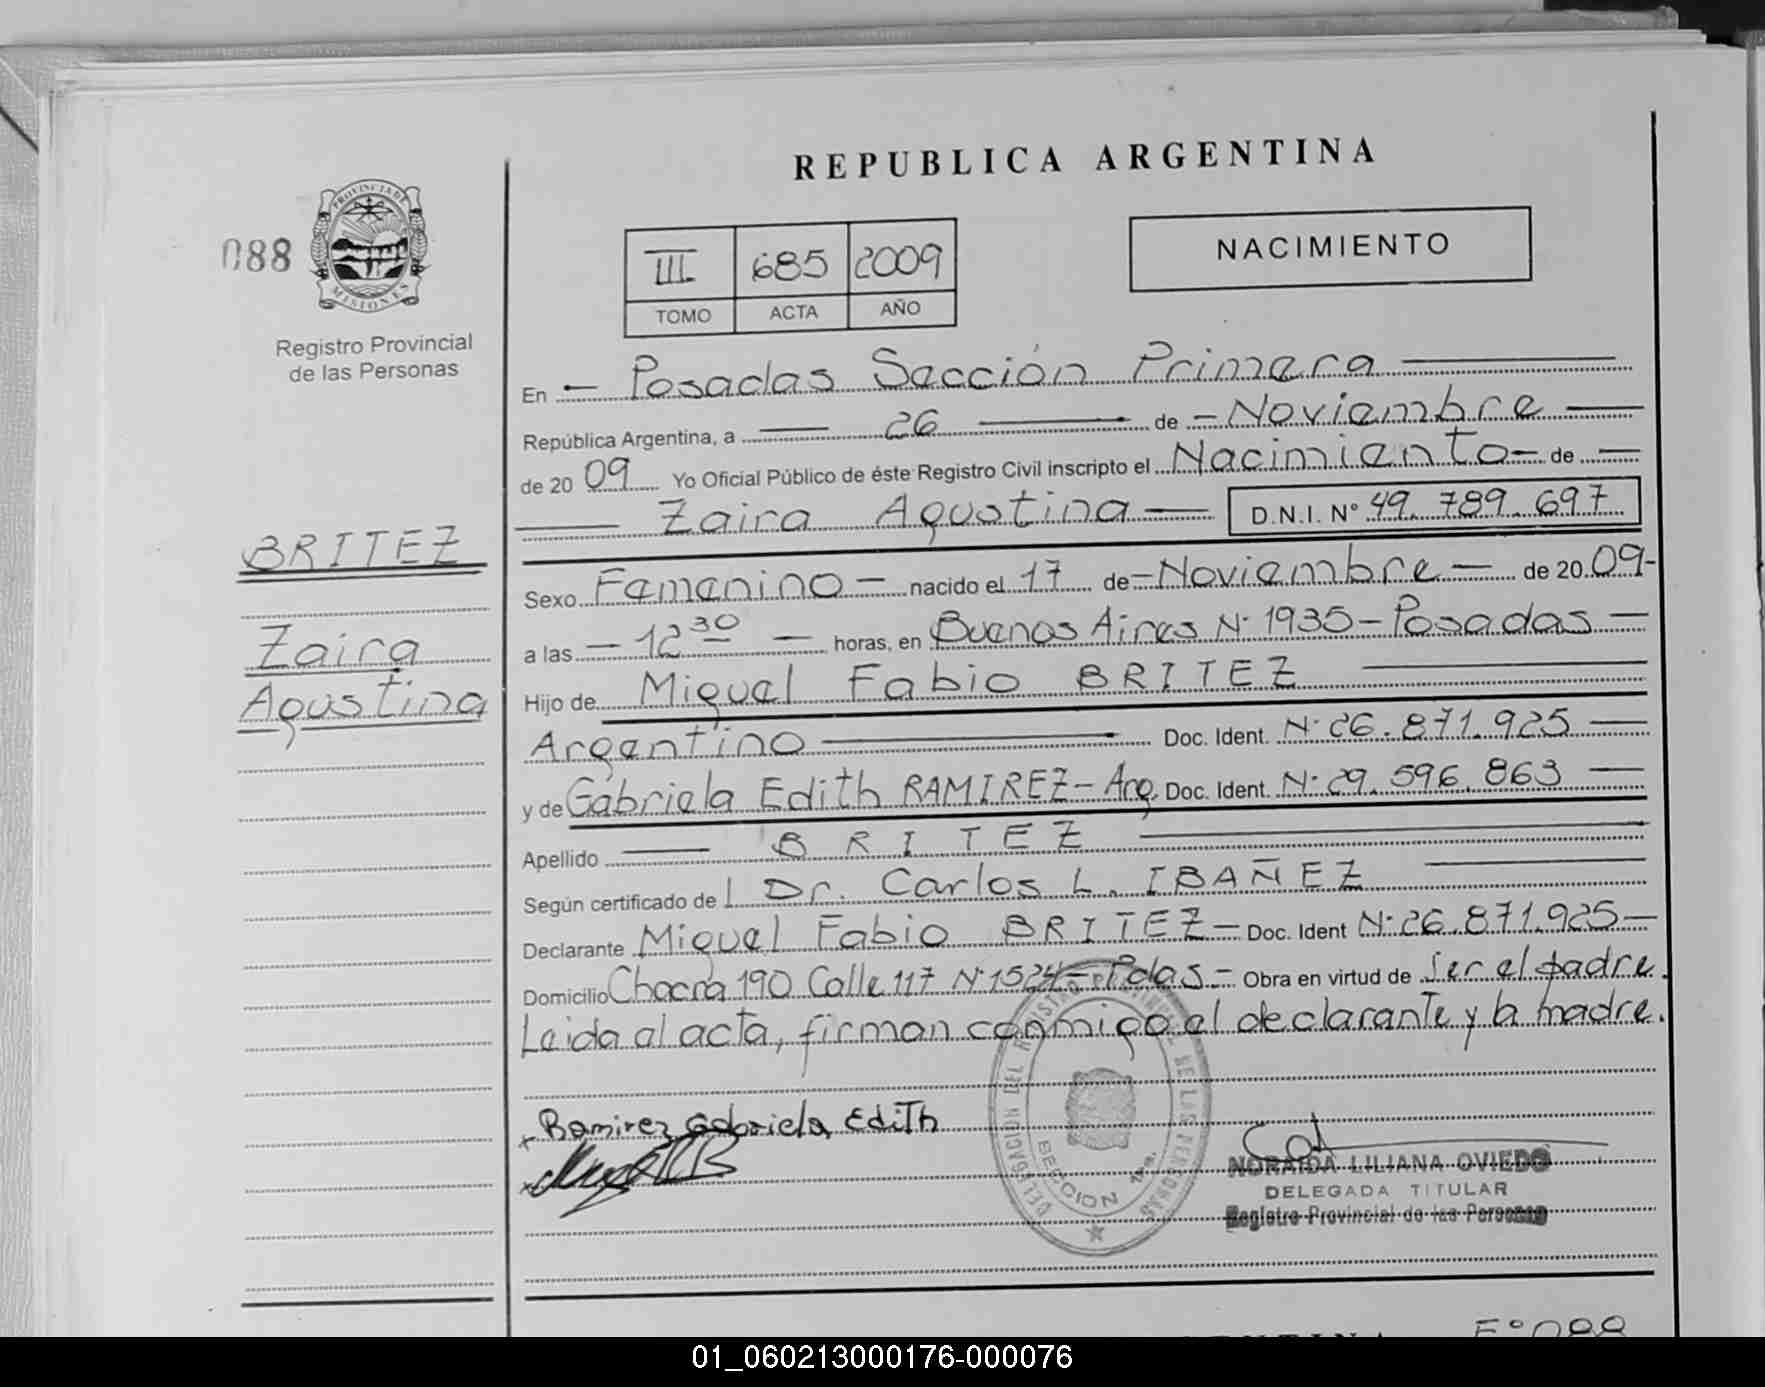 REPUBLICA ARGENTINA
088
PROVINCIA DE
MISIONES
Registro Provincial
de las Personas
III 685 2009
TOMO ACTA AÑO
NACIMIENTO
En - Posadas Sección Primera
República Argentina, a 26 de - Noviembre
de 2009 Yo Oficial Público de éste Registro Civil inscripto el Nacimiento - de
Zaira Agustina - D.N.I. N° 49.789.697
BRITEZ
Zaira
Agustina
Sexo Femenino - nacido el 17 de - Noviembre - de 2009-
a las - 12 30 - horas, en Buenos Aires N° 1935 - Posadas -
Hijo de Miguel Fabio BRITEZ
Argentino Doc. Ident. N° 26.871.925
y de Gabriela Edith RAMIREZ - Arg. Doc. Ident. N° 29.596.863
Apellido BRITEZ
Según certificado de Dr. Carlos L. IBAÑEZ
Declarante Miguel Fabio BRITEZ - Doc. Ident N° 26.871.925-
Domicilio Chacra 190 Calle 117 N° 1524 - Pdas - Obra en virtud de Ser el padre.
Leida el acta, firman conmigo el declarante y la madre.
x Ramirez Gabriela Edith
DELEGACION DEL REGISTRO PROVINCIAL DE LAS PERSONAS
SECCION 1ra.
NORAIDA LILIANA OVIEDO
DELEGADA TITULAR
Registro Provincial de las Personas
F° 088
01_060213000176-000076